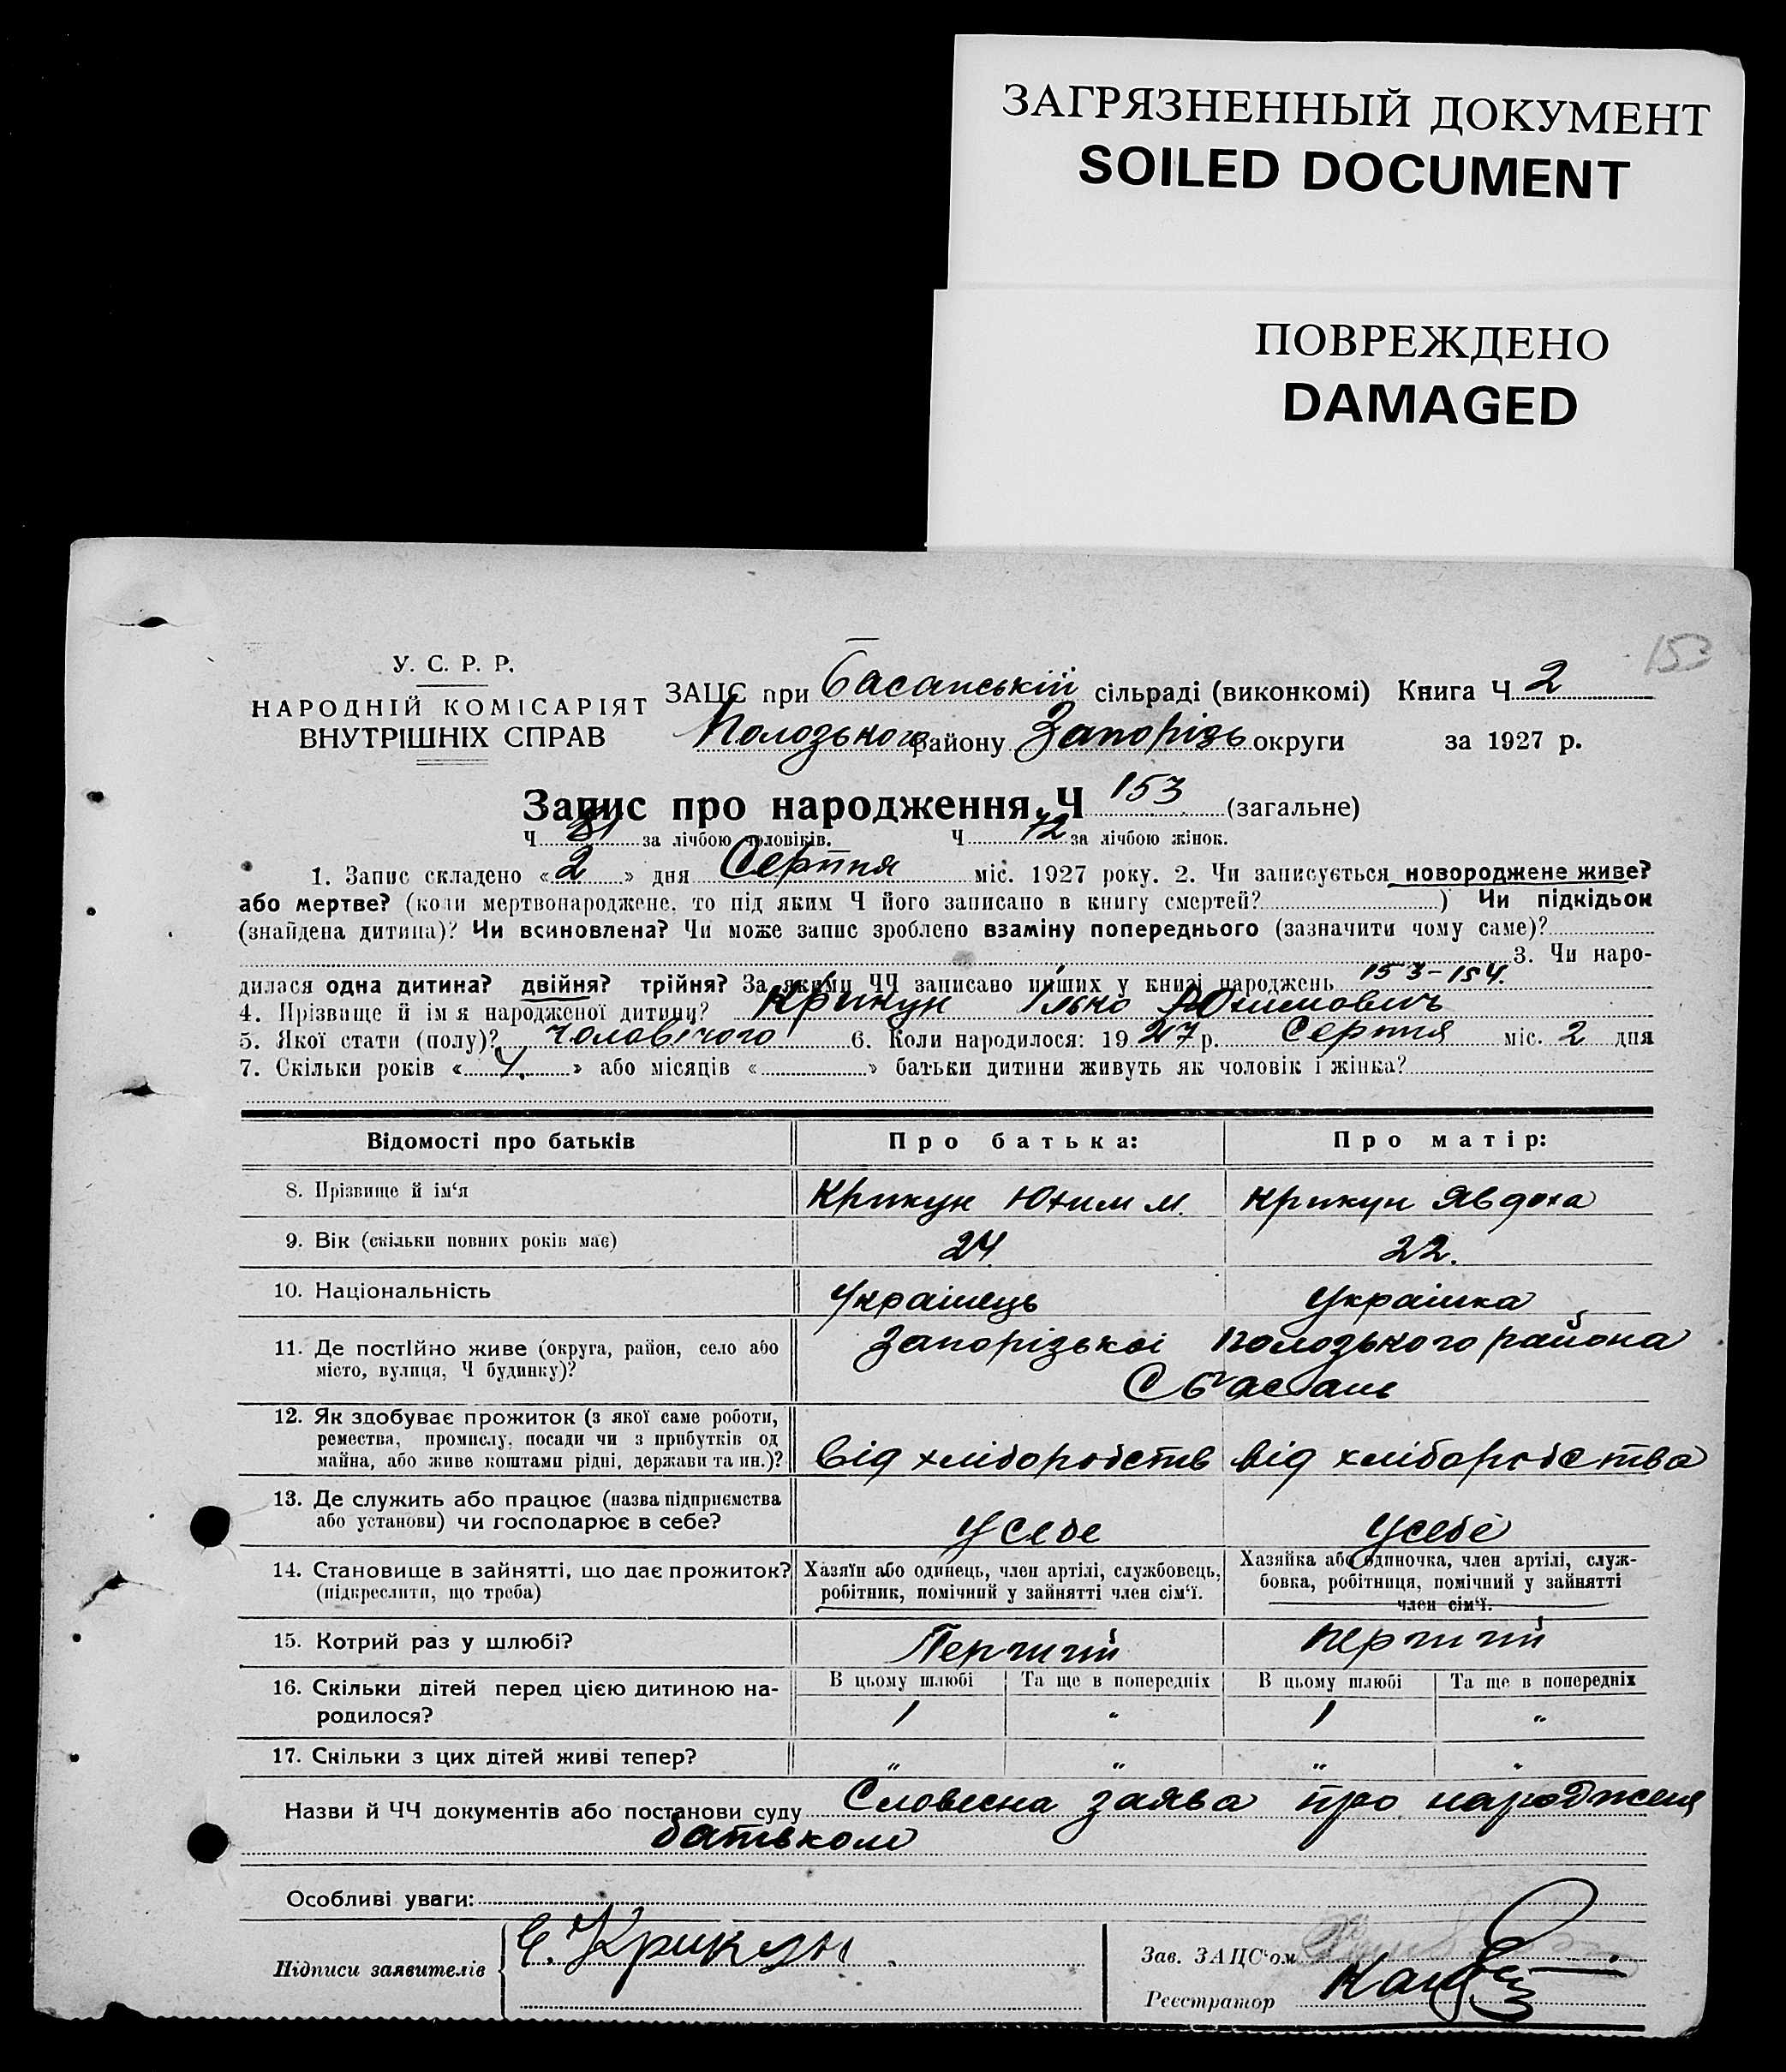 ЗАГРЯЗНЕННЫЙ ДОКУМЕНТ
SOILED DOCUMENT
ПОВРЕЖДЕНО
DAMAGED
153
У. С. Р. Р.
НАРОДНІЙ КОМІСАРІЯТ
ВНУТРІШНІХ СПРАВ
ЗАЦС при Басанській сільраді (виконкомі) Книга Ч 2
Полозького району Запорізь округи за 1927 р.
Запис про народження, Ч 153 (загальне)
Ч 81 за лічбою чоловіків. Ч 72 за лічбою жінок.
1. Запис складено «2» дня Серпня міс. 1927 року. 2. Чи записується новороджене живе?
або мертве? (коли мертвонароджене, то під яким Ч його записано в книгу смертей? ) Чи підкідьок
(знайдена дитина)? Чи всиновлена? Чи може запис зроблено взаміну попереднього (зазначити чому саме)?
3. Чи наро-
дилася одна дитина? двійня? трійня? За якими ЧЧ записано инших у книзі народжень 153-154.
4. Прізвище й імя народженої дитини? Крикун Ілько Юхимович
5. Якої стати (полу)? Чоловічого 6. Коли народилося: 1927 р. Серпня міс. 2 дня
7. Скільки років «4.» або місяців « » батьки дитини живуть як чоловік і жінка?
Відомості про батьків Про батька: Про матір:
8. Прізвище й ім‘я Крикун Юхим М. Крикун Явдоха
9. Вік (скільки повних років має) 24 22.
10. Національність Українець Українка
11. Де постійно живе (округа, район, село або
місто, вулиця, Ч будинку)? Запорізькоі Полозького района
С Басань
12. Як здобуває прожиток (з якої саме роботи,
ремества, промислу, посади чи з прибутків од
майна, або живе коштами рідні, держави та ин.)? Від хліборобств від хліборобства
13. Де служить або працює (назва підприємства
або установи) чи господарює в себе? У себе У себе
14. Становище в зайнятті, що дає прожиток?
(підкреслити, що треба)
Хазяїн або одинець, член артілі, службовець,
робітник, помічний у зайнятті член сім‘ї.
Хазяйка або одиночка, член артілі, служ-
бовка, робітниця, помічний у зайнятті
член сім‘ї.
15. Котрий раз у шлюбі? Перший перший
16. Скільки дітей перед цією дитиною на-
родилося?
В цьому шлюбі Та ще в попередніх В цьому шлюбі Та ще в попередніх
1 " 1 "
17. Скільки з цих дітей живі тепер? " " " "
Назви й ЧЧ документів або постанови суду Словесна заява про народженя
батьком
Особливі уваги:
Підписи заявителів Є. Крикун
Зав. ЗАЦС‘ом
Реєстратор